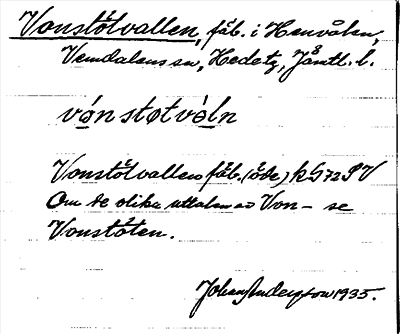 Vonstötvallen, fäb. i Henvålen,
Vemdalens sn, Hedetg, Jämtl. l.
vón støt vàln
Vonstötvallen fäb. (öde) k G 72 S V
Om de olika uttalen av Von- se
Vonstöten.
Johan Anderson 1935.